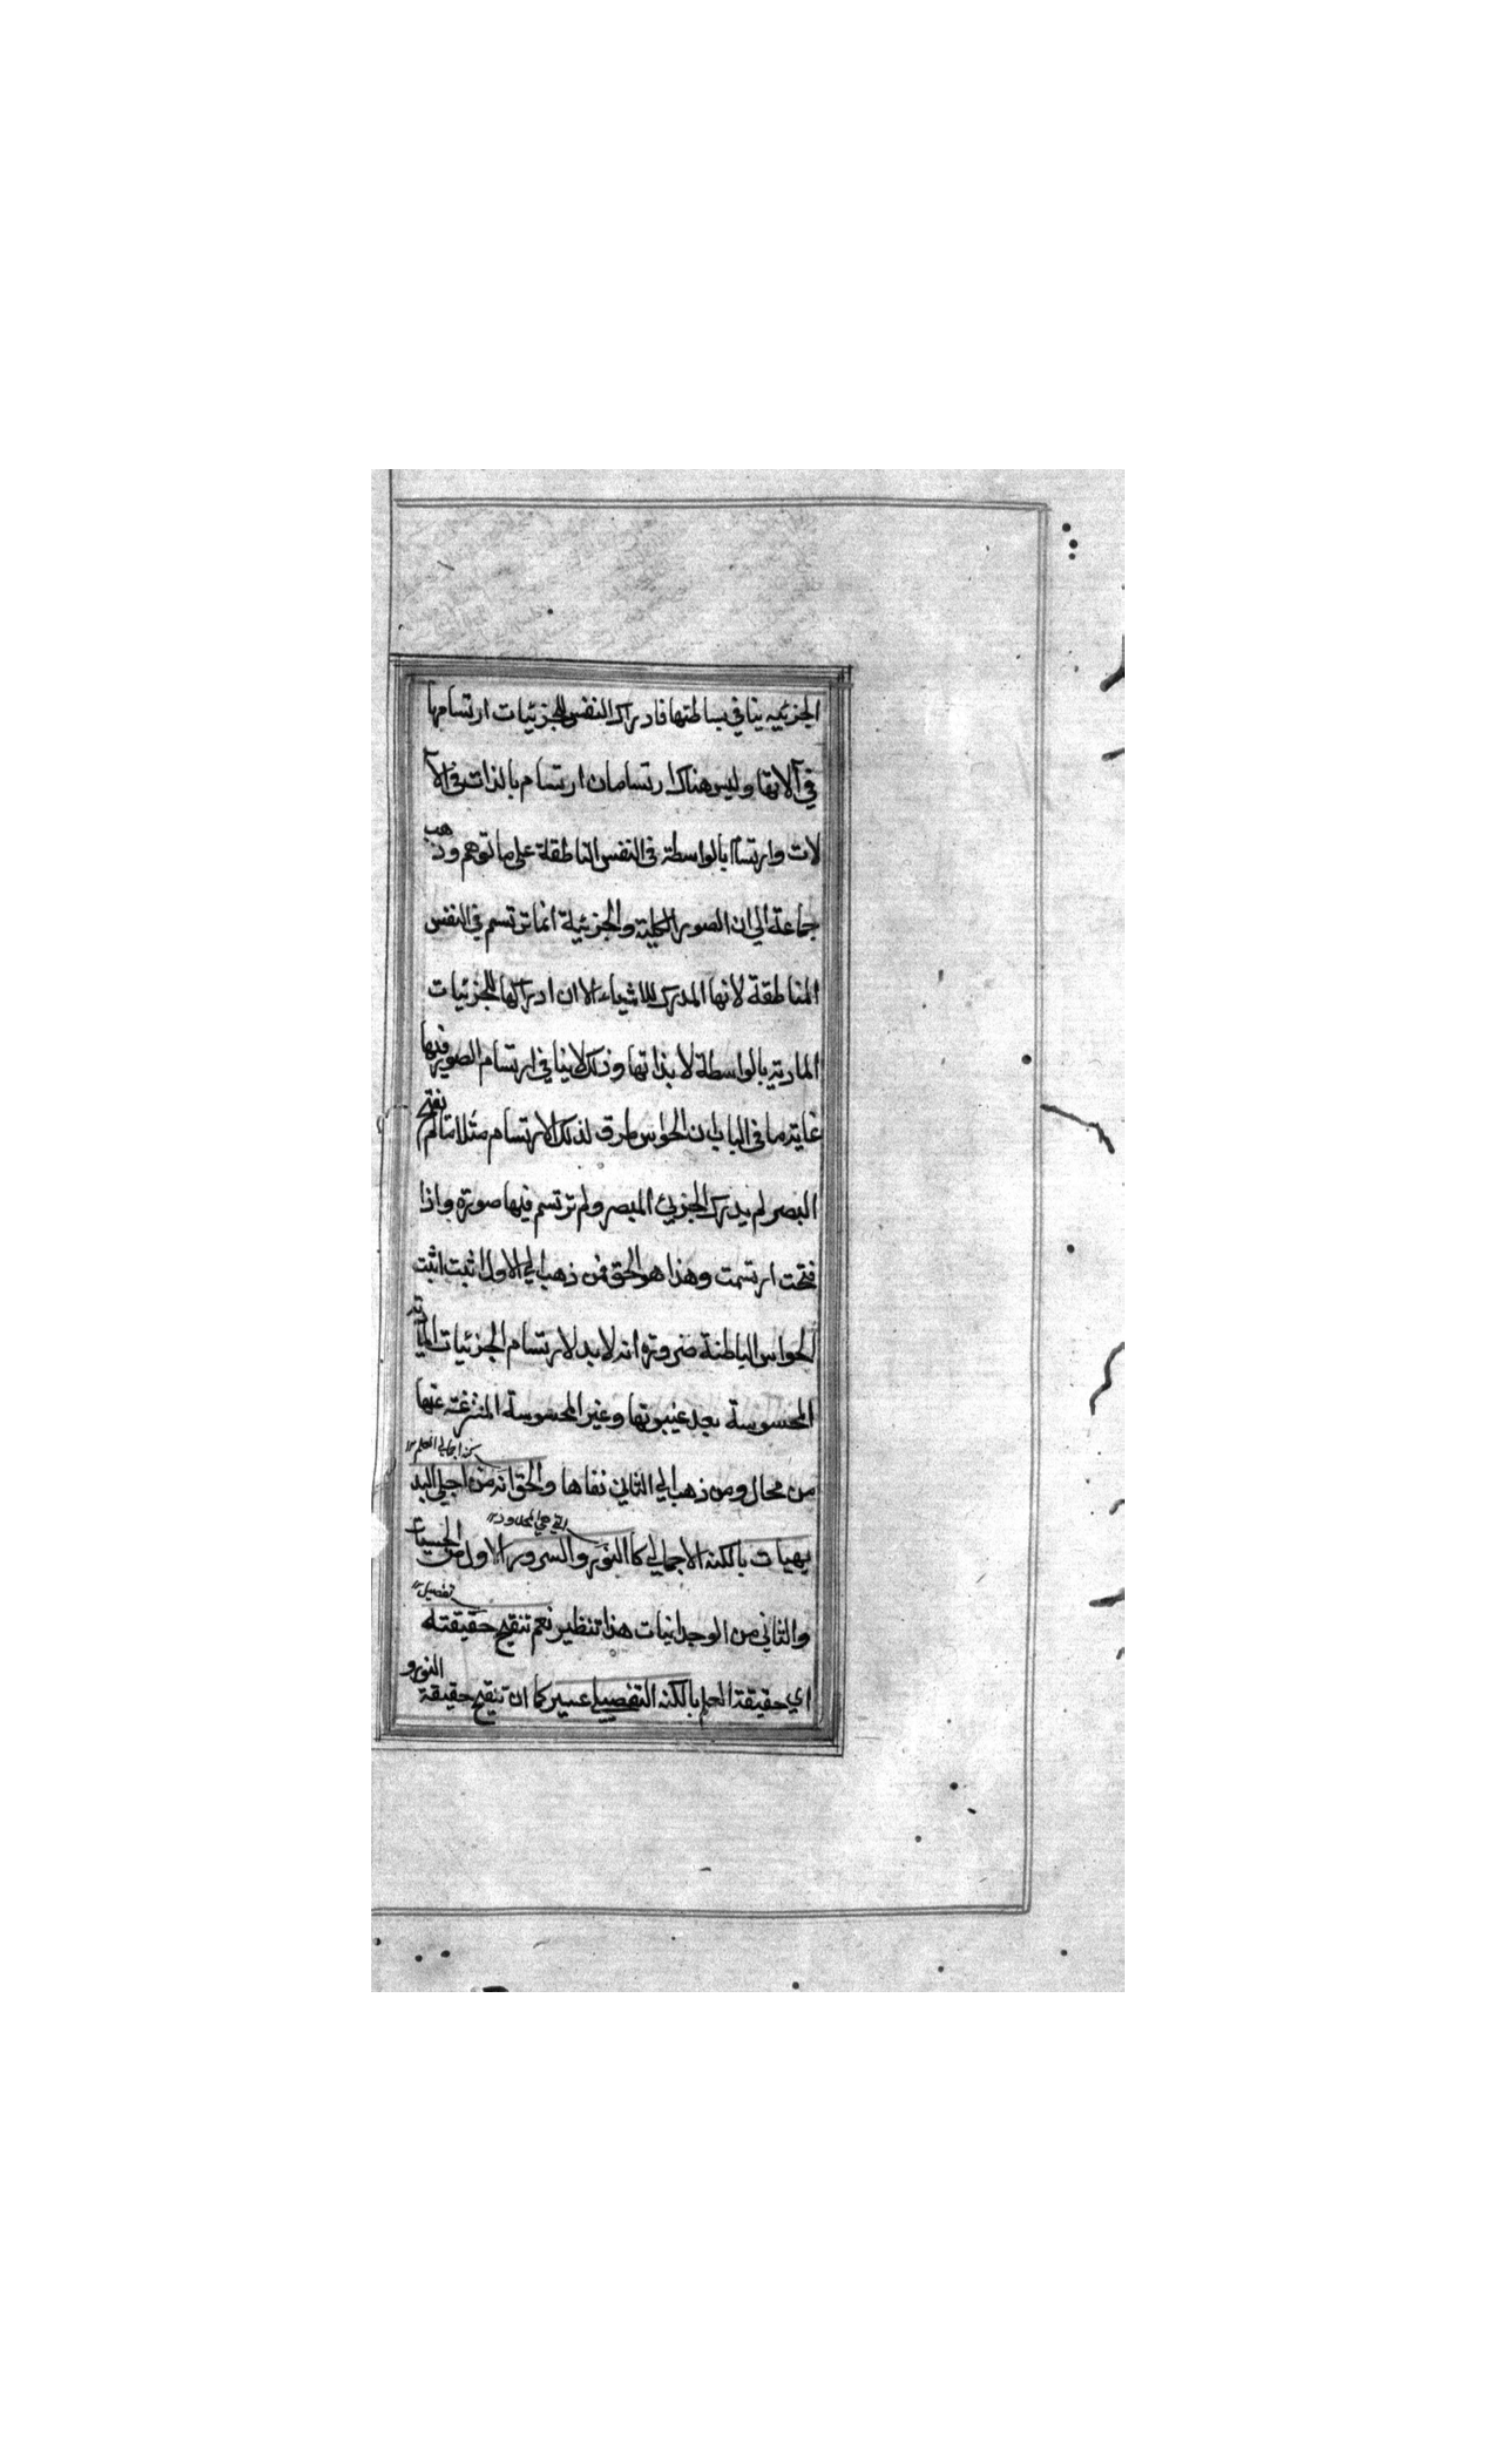 الجزئيه ينافي بساطتها فادراك النفس للجزئيات ارتسامها
في آلاتها وليس هناك ارتسامان ارتسام بالذات في الآ
لات وارتسام بالواسطة في النفس الناطقة على ما توهم وذهب
جماعة الي ان الصور الكلية والجزئية انما ترتسم في النفس
الناطقة لانها المدرك للاشياء الا ان ادراكها للجزئيات
المادية بالواسطة لا بذاتها وذلك لا ينافي ارتسام الصور فيها
غاية ما في الباب ان الحواس طرق لذلك الارتسام مثلا ما لم يفتح
البصر لم يدرك الجزئي المبصر ولم ترتسم فيها صورة واذا
فتحت ارتسمت وهذا هو الحق فمن ذهب الي الاول اثبت اثبت
الحواس الباطنة ضرورة انه لا بد لارتسام الجزئيات المادية
المحسوسة بعد غيبوبتها وغير المحسوسة المنتزعة عنها
كنه اجمالي العلم
من محال ومن ذهب الي الثاني نفاها والحق انه من اجلي البد
يهيات بالكنه الاجمالي كالنور والسرور الاول من الحسيات
والثاني من الوجدانيات هذا تنظير نعم تنقيح حقيقته
اي حقيقة العلم بالكنه التفصيلي عسير كما ان تنقيح حقيقة النور و